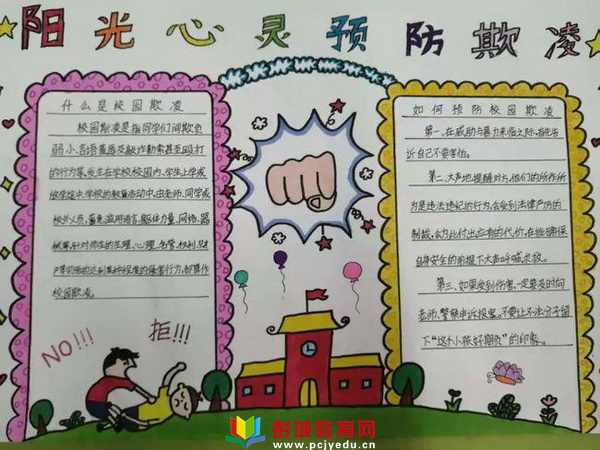 阳光心灵预防欺凌
什么是校园欺凌
校园欺凌是指同学们间欺负
弱小、言语羞辱及敲诈勒索甚至殴打
的行为等,发生在学校校园内、学生上学或
放学途中、学校的教育活动中,由老师、同学或
校外人员,蓄意滥用语言、躯体力量、网络、器
械等,针对师生的生理、心理、名誉、权利、财
产等实施的达到某种程度的侵害行为,都算作
校园欺凌。
NO!!!
拒!!!
如何预防校园欺凌
第一、在威胁与暴力来临之际,首先告
诉自己不要害怕。
第二、大声地提醒对方,他们的所作所
为是违法违纪的行为,会受到法律严厉的
制裁,会为此付出应有的代价,在能确保
自身安全的前提下大声呼喊求救。
第三、如果受到伤害,一定要及时向
老师、警察申诉报案。不要让不法分子留
下"这个小孩好欺负"的印象。
彭城教育网
www.pcjyedu.cn